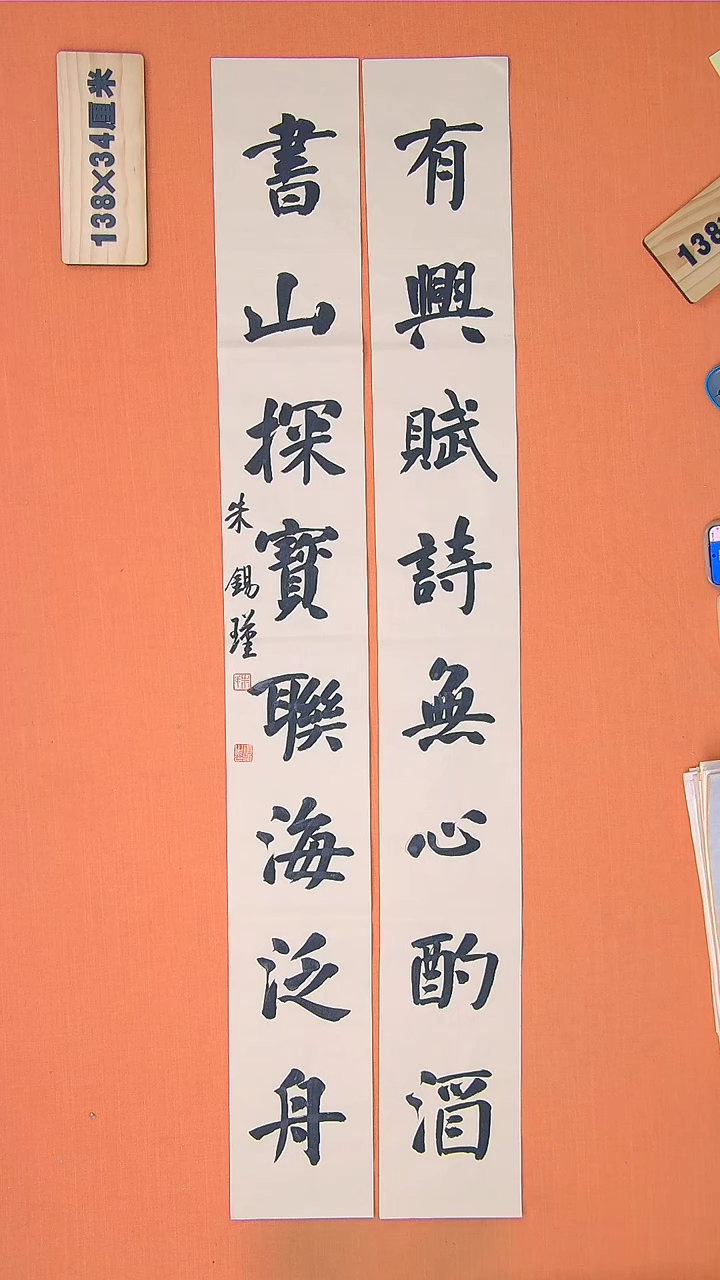 有興賦詩無心酌酒
書山探寶聯海泛舟
朱錫瑾
138×34厘米
138